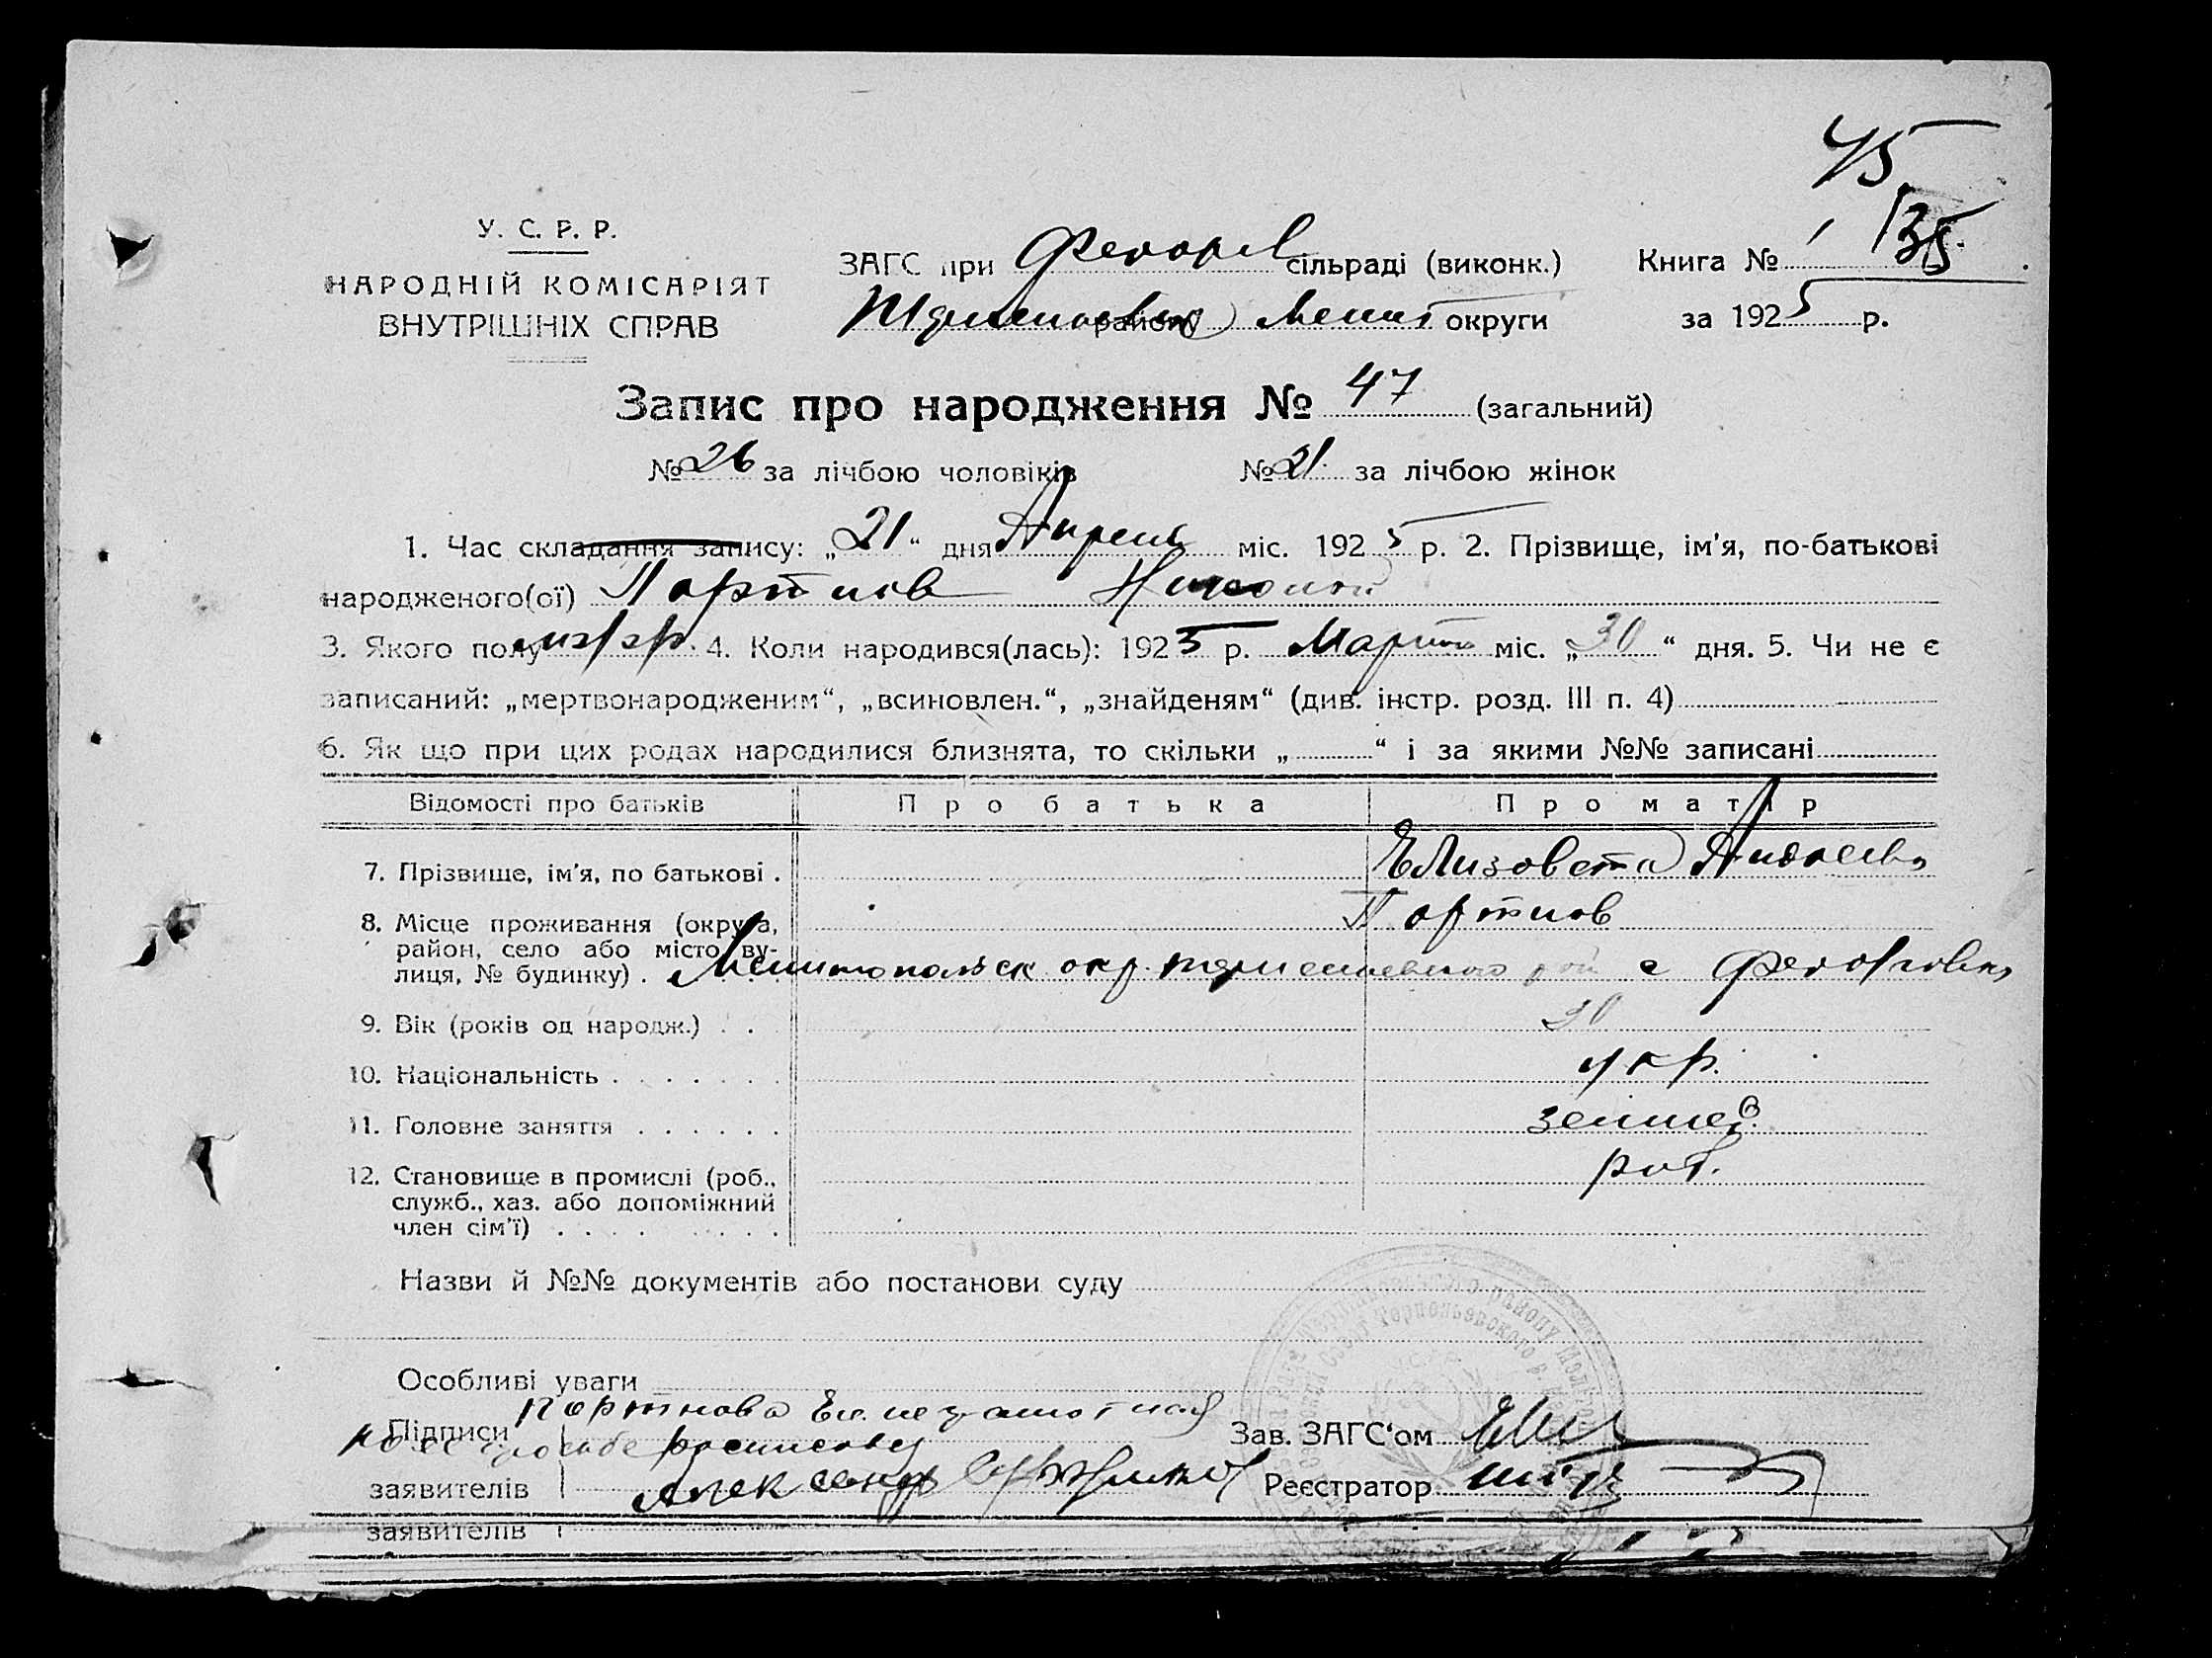 45
135
У. С. Р. Р.
НАРОДНІЙ КОМІСАРІЯТ
ВНУТРІШНІХ СПРАВ
ЗАГС при Федор сільраді (виконк.)
району Мелит округи
Книга № 1
за 1925 р.
Запис про народження № 47 (загальний)
№ 26 за лічбою чоловіків № 21 за лічбою жінок
1. Час складання запису: „21“ дня Апрель міс. 1925 р. 2. Прізвище, ім'я, по-батькові
народженого(ої) Портнов Николай
3. Якого полу 4. Коли народився(лась): 1925 р. Март міс. „30“ дня. 5. Чи не є
записаний: „мертвонародженим“, „всиновлен.“, „знайденям“ (див. інстр. розд. III п. 4)
6. Як що при цих родах народилися близнята, то скільки „ “ і за якими №№ записані
Відомості про батьків Про батька Про матір
7. Прізвище, ім'я, по батькові . Елизовета
8. Місце проживання (округа, Портнов
район, село або місто, ву-
лиця, № будинку) . Мелитопольск окр. с
9. Вік (років од народж.) . . 30
10. Національність . . . . . . . укр.
11. Головне заняття . . . . . .
12. Становище в промислі (роб.,
служб., хаз. або допоміжний
член сім'ї) . . . . . . . .
Назви й №№ документів або постанови суду
Особливі уваги
Портнова Ел. неграмотная
Підписи
по ее просьбе
заявителів Александр
Зав. ЗАГС'ом
Реєстратор
заявителів